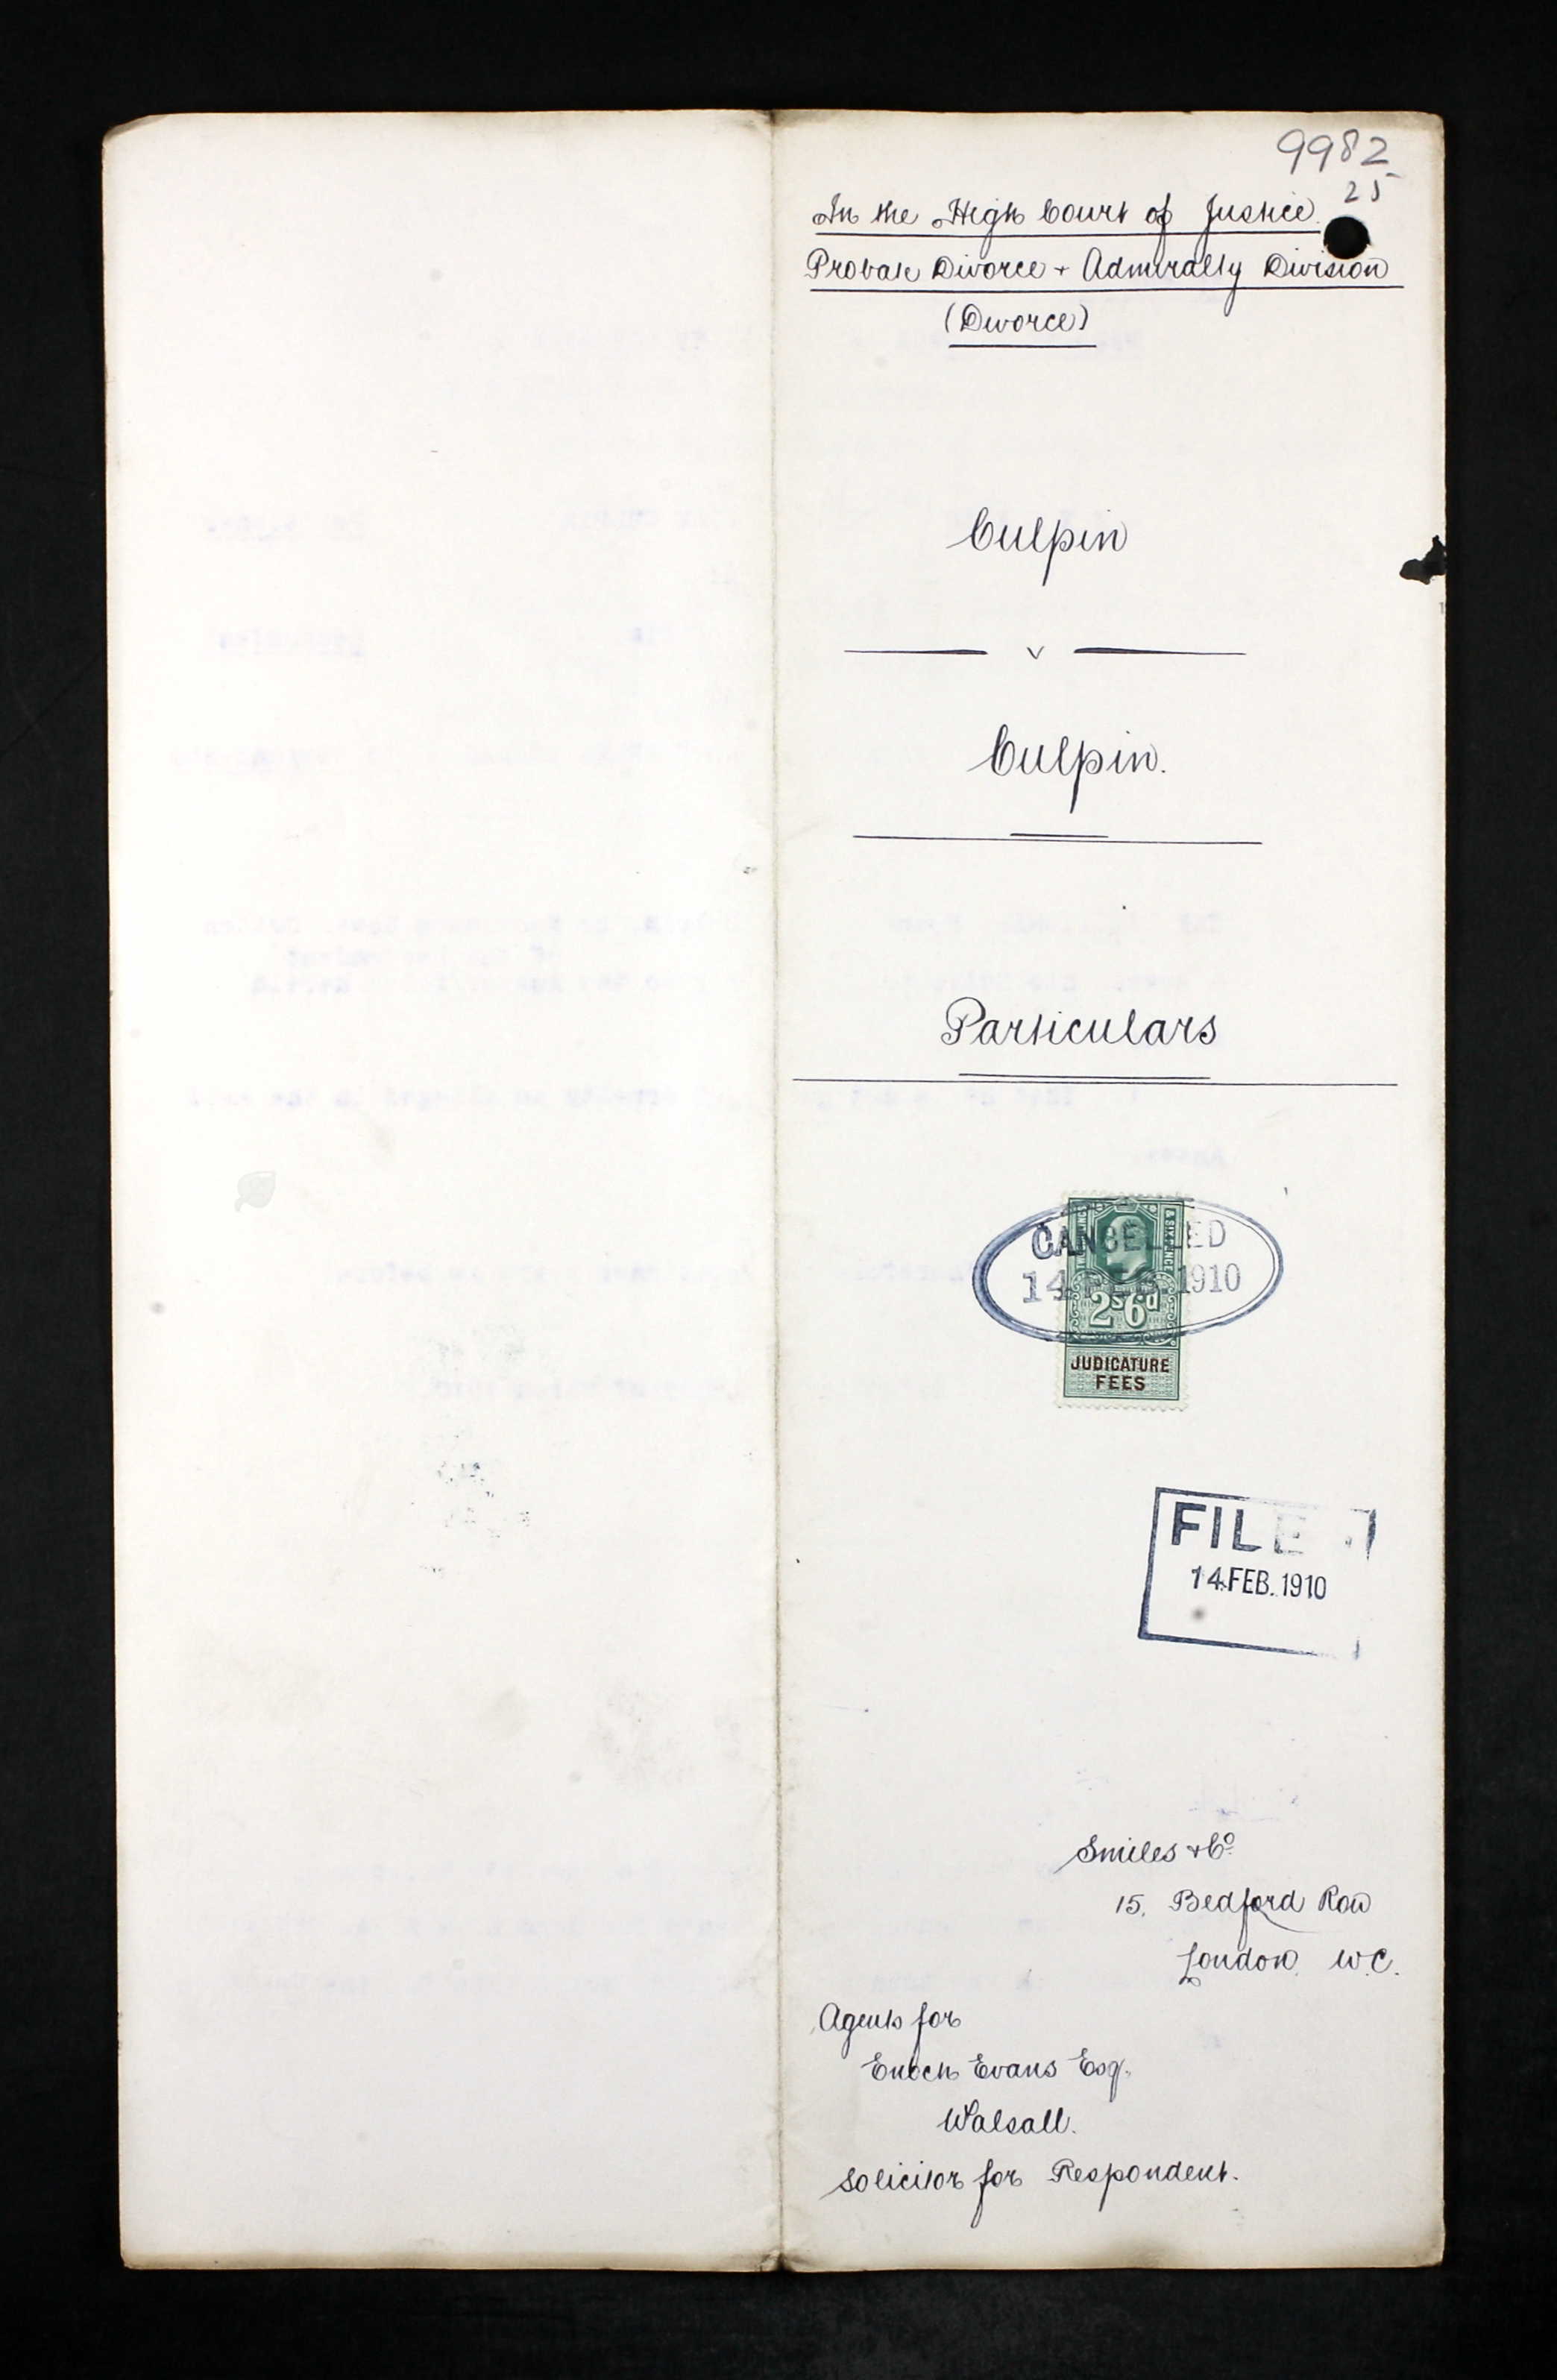 9982
25
In the High Court of Justice
Probate Divorce + Admiralty Division
(Divorce)
Culpin
v
Culpin.
Particulars
CANCELLED
14 FEB. 1910
& SIXPENCE
2s6d
JUDICATURE
FEES
FILE
14.FEB.1910
Smiles & Co
15, Bedford Row
London, W.C.
Agents for
Enoch Evans Esq.
Walsall.
Solicitor for Respondent.